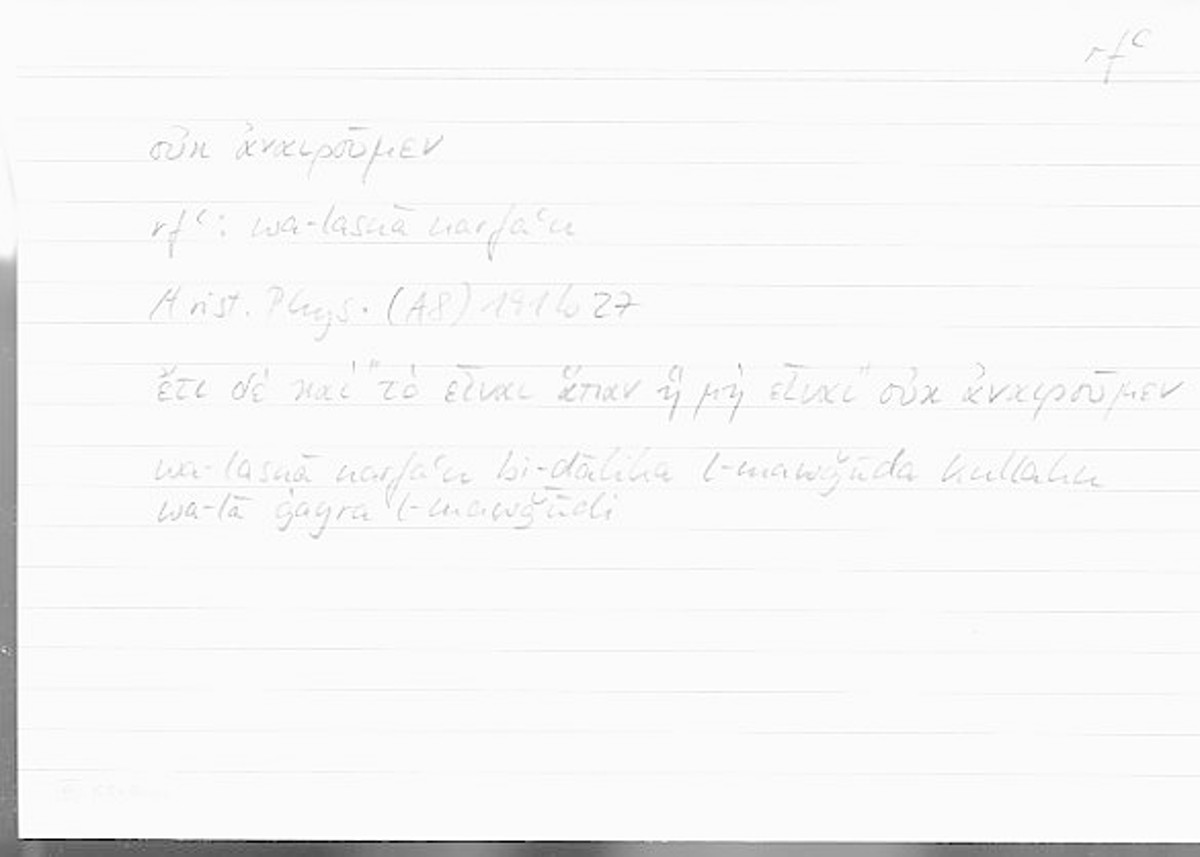 rfʿ
οὐκ ἀναιροῦμεν
rfʿ: wa-lasnā narfaʿu
Arist. Phys. (A8) 191b27
ἔτι δὲ καὶ "τὸ εἶναι ἅπαν ἢ μὴ εἶναι" οὐκ ἀναιροῦμεν
wa-lasnā narfaʿu bi-ḏālika l-mawǧūda kullahu
wa-lā ġayra l-mawǧūdi